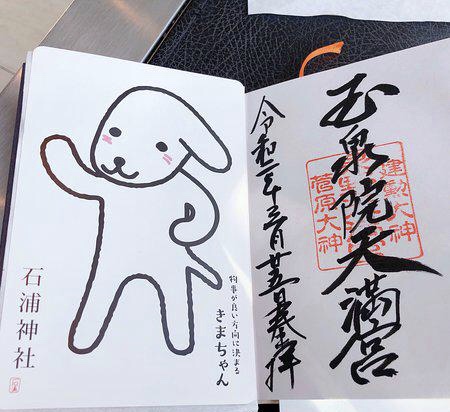 玉泉院天満宮
建勲大神
菅原大神
令和二年三月廿五日奉拝
物事が良い方向に決まる
きまちゃん
石浦神社